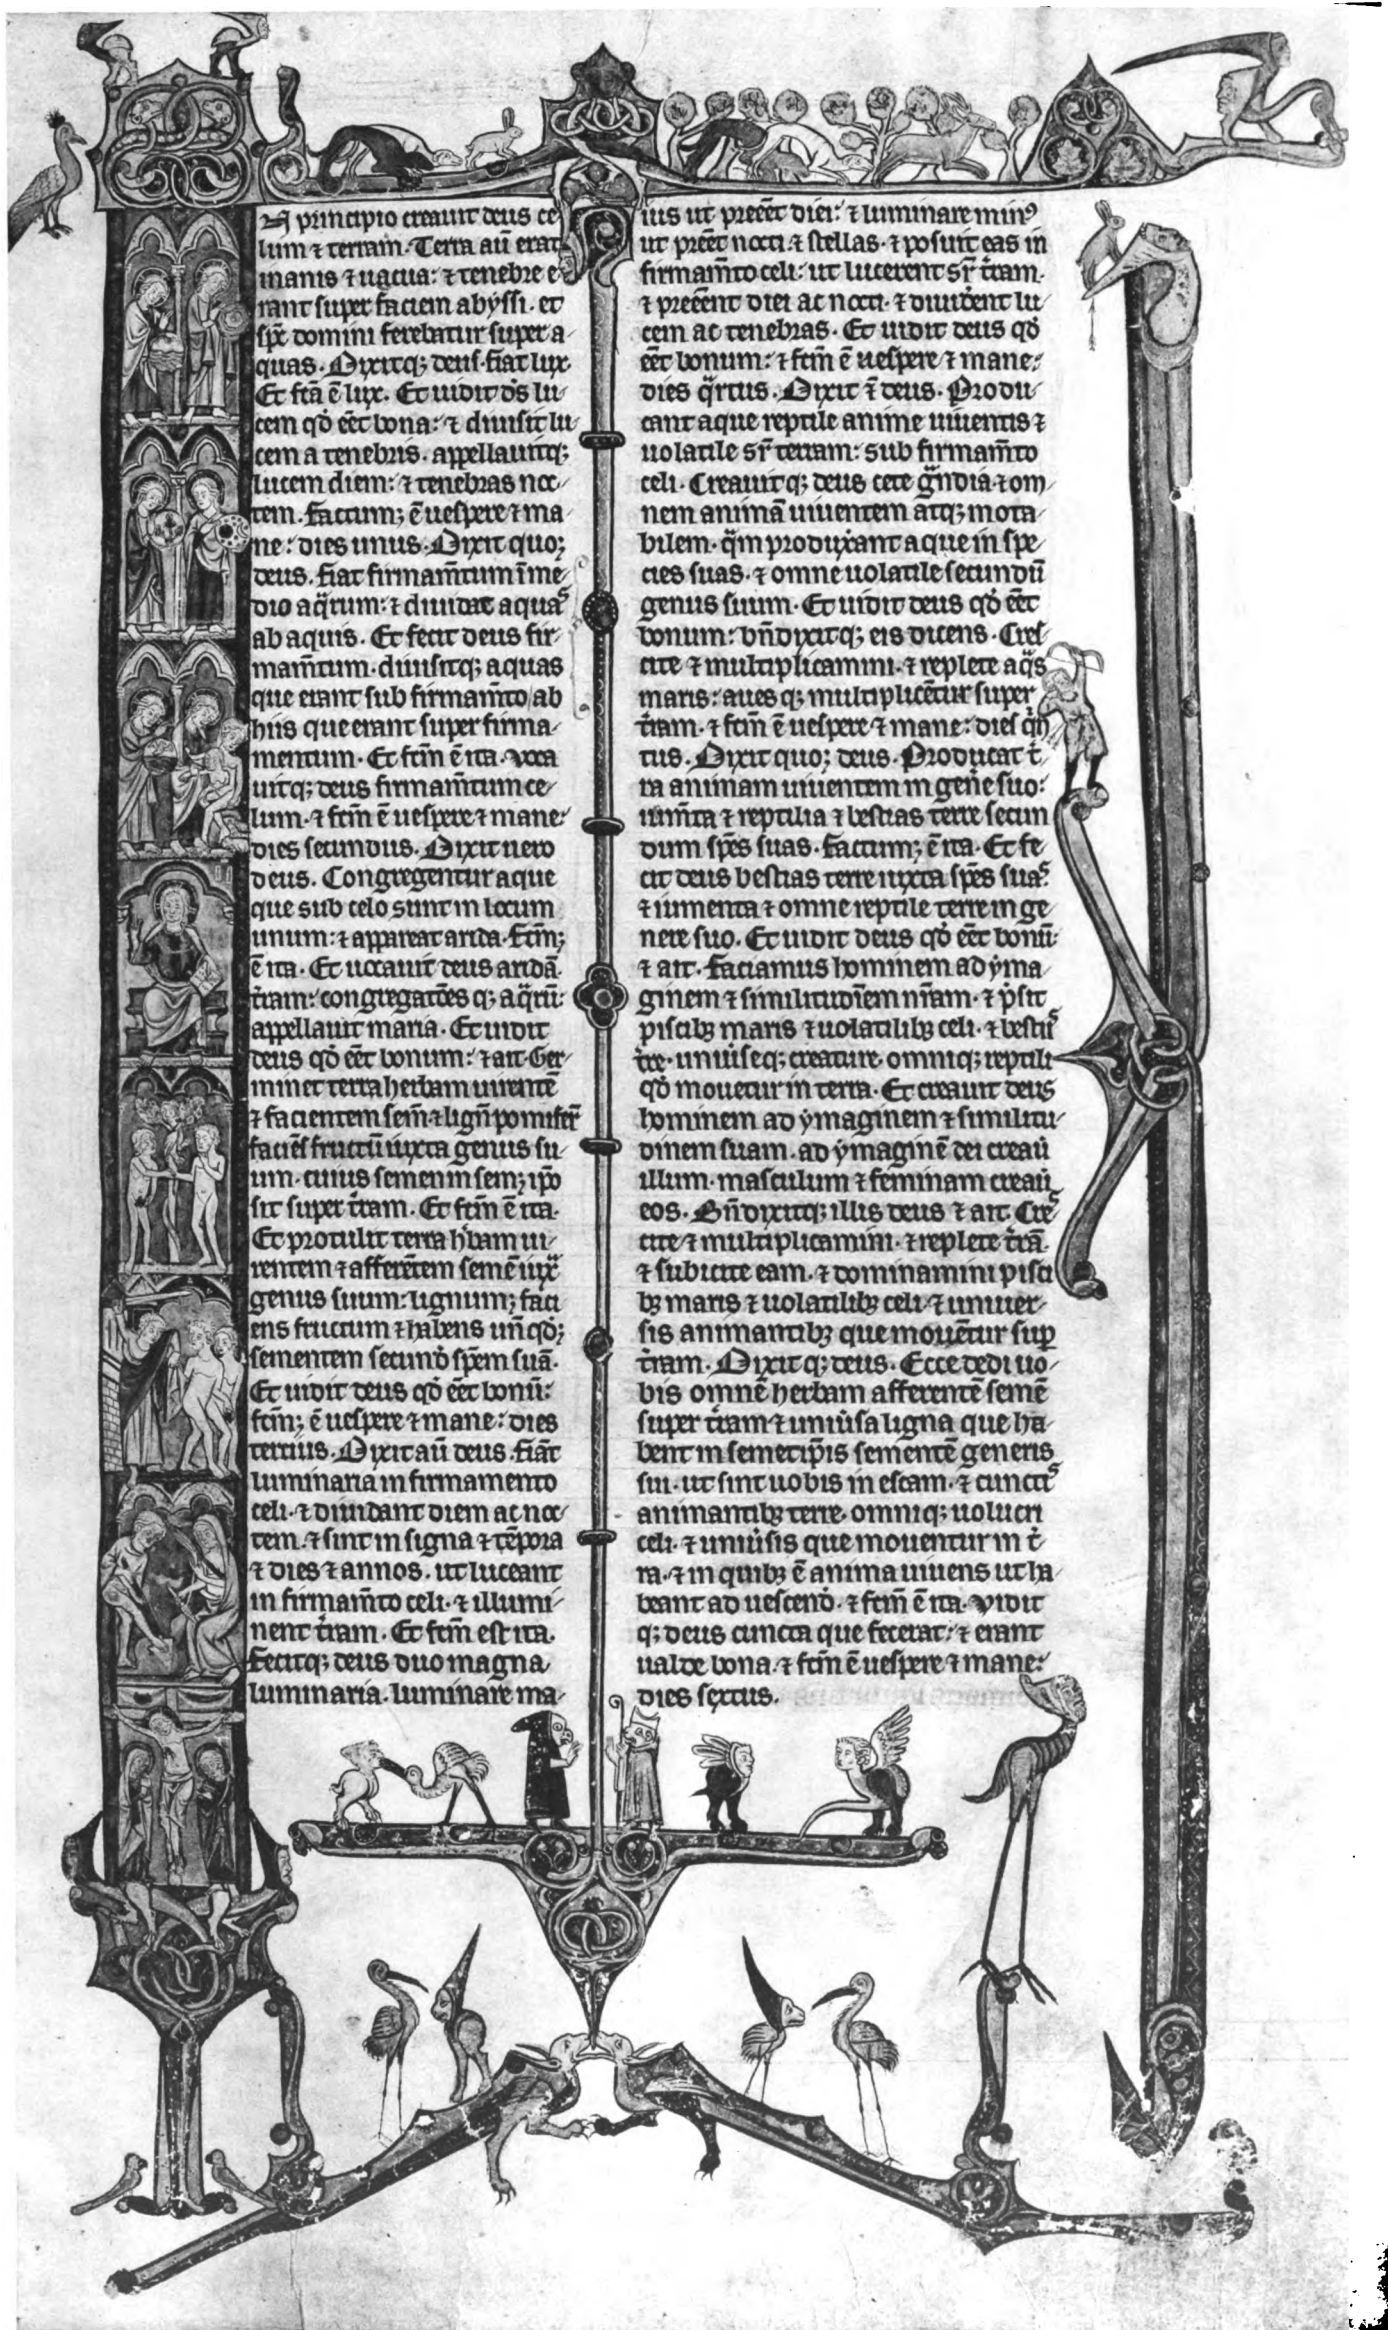 N principio creauit deus ce
lum ⁊ terram. Terra aū erat
inanis ⁊ uacua: ⁊ tenebre e
rant super faciem abyssi. et
sp̄c domini ferebatur super a
quas. Dixitqꝫ deus. fiat lux.
Et fc̄a ē lux. Et uidit dс̄ lu
cem qđ eēt bona: ⁊ diuisit lu
cem a tenebris. appellauitqꝫ
lucem diem: ⁊ tenebras noc
tem. factumꝫ ē uespere ⁊ ma
ne: dies unus. Dixit quoꝫ
deus. fiat firmam̄tum ī me
dio aq̄rum: ⁊ diuidat aquas
ab aquis. Et fecit deus fir
mam̄tum. diuisitqꝫ aquas
que erant sub firmam̄to ab
hiis que erant super firma
mentum. Et fcm̄ ē ita. Voca
uitqꝫ deus firmam̄tum ce
lum. ⁊ fcm̄ ē uespere ⁊ mane:
dies secundus. Dixit uero
deus. Congregentur aque
que sub celo sunt in locum
unum: ⁊ appareat arida. fcm̄ꝫ
ē ita. Et uocauit deus aridā
t̄ram: congregatōes qꝫ aq̄rū:
appellauit maria. Et uidit
deus qđ eēt bonum: ⁊ ait. Ger
minet terra herbam uirentē
⁊ facientem sem̄. ⁊ lign̄ pomifer̄
faciēs fructū iuxta genus su
um. cuius semen in semꝫ ip̄o
sit super t̄ram. Et fcm̄ ē ita.
Et protulit terra h̄bam ui
rentem ⁊ afferētem semē iux̄
genus suum: lignumꝫ faci
ens fructum ⁊ habens un̄ qđꝫ
sementem secund̄ sp̄em suā.
Et uidit deus qđ eēt bonū:
fcm̄ꝫ ē uespere ⁊ mane: dies
tertius. Dixit aū deus. fiāt
luminaria in firmamento
celi. ⁊ diuidant diem ac noc
tem. ⁊ sint in signa ⁊ tēpora
⁊ dies ⁊ annos. ut luceant
in firmam̄to celi. ⁊ illumi
nent t̄ram. Et fcm̄ est ita.
fecitqꝫ deus duo magna
luminaria. luminare ma
ius ut preeēt diei: ⁊ luminare minꝰ
ut preēt nocti. ⁊ stellas. ⁊ posuit eas in
firmam̄to celi: ut lucerent sr̄ t̄ram.
⁊ preeēnt diei ac nocti. ⁊ diuid̄ent lu
cem ac tenebras. Et uidit deus qđ
eēt bonum: ⁊ fcm̄ ē uespere ⁊ mane:
dies q̄rtus. Dixit ē̄ deus. Produ
cant aque reptile anime uiuentis ⁊
uolatile sr̄ terram: sub firmam̄to
celi. Creauit qꝫ deus cete ḡndia ⁊ om
nem animā uiuentem atqꝫ mota
bilem. q̄m produx̄ant aque in spe
cies suas. ⁊ omne uolatile secundū
genus suum. Et uidit deus qđ eēt
bonum: bn̄dixit qꝫ eis dicens. Cres
cite ⁊ multiplicamini. ⁊ replete aq̄s
maris: aues qꝫ multiplicētur super
t̄ram. ⁊ fcm̄ ē uespere ⁊ mane: dies q̄n
tus. Dixit quoꝫ deus. Producat t̄
ra animam uiuentem in gen̄e suo:
ium̄ta ⁊ reptilia ⁊ bestias terre secun
dum sp̄es suas. factumꝫ ē ita. Et fe
cit deus bestias terre iuxta sp̄es suas.
⁊ iumenta ⁊ omne reptile terre in ge
nere suo. Et uidit deus qđ eēt bonū:
⁊ ait. faciamus hominem ad yma
ginem ⁊ similitudīem nr̄am. ⁊ p̄sit
piscibꝫ maris ⁊ uolatilibꝫ celi. ⁊ bestiis
t̄re. uniūseqꝫ creature. omniqꝫ reptili
qđ mouetur in terra. Et creauit deus
hominem ad ymaginem ⁊ similitu
dinem suam. ad ymaginē dei creaū
illum. masculum ⁊ feminam creaū
eos. Bn̄dixitqꝫ illis deus ⁊ ait. Cres
cite ⁊ multiplicamini. ⁊ replete t̄rā
⁊ subicite eam. ⁊ dominamini pisci
bꝫ maris ⁊ uolatilibꝫ celi. ⁊ uniuer
sis animantibꝫ que mouētur sup̄
t̄ram. Dixit qꝫ deus. Ecce dedi uo
bis omnē herbam afferentē semē
super t̄ram ⁊ uniūsa ligna que ha
bent in semetip̄is sementē generis
sui. ut sint uobis in escam. ⁊ cunctis
animantibꝫ terre. omniqꝫ uolucri
celi. ⁊ uniūsis que mouentur in t̄
ra. ⁊ in quibꝫ ē anima uiuens ut ha
beant ad uescend̄. ⁊ fcm̄ ē ita. Vidit
qꝫ deus cuncta que fecerat: ⁊ erant
ualde bona. ⁊ fcm̄ ē uespere ⁊ mane:
dies sextus.